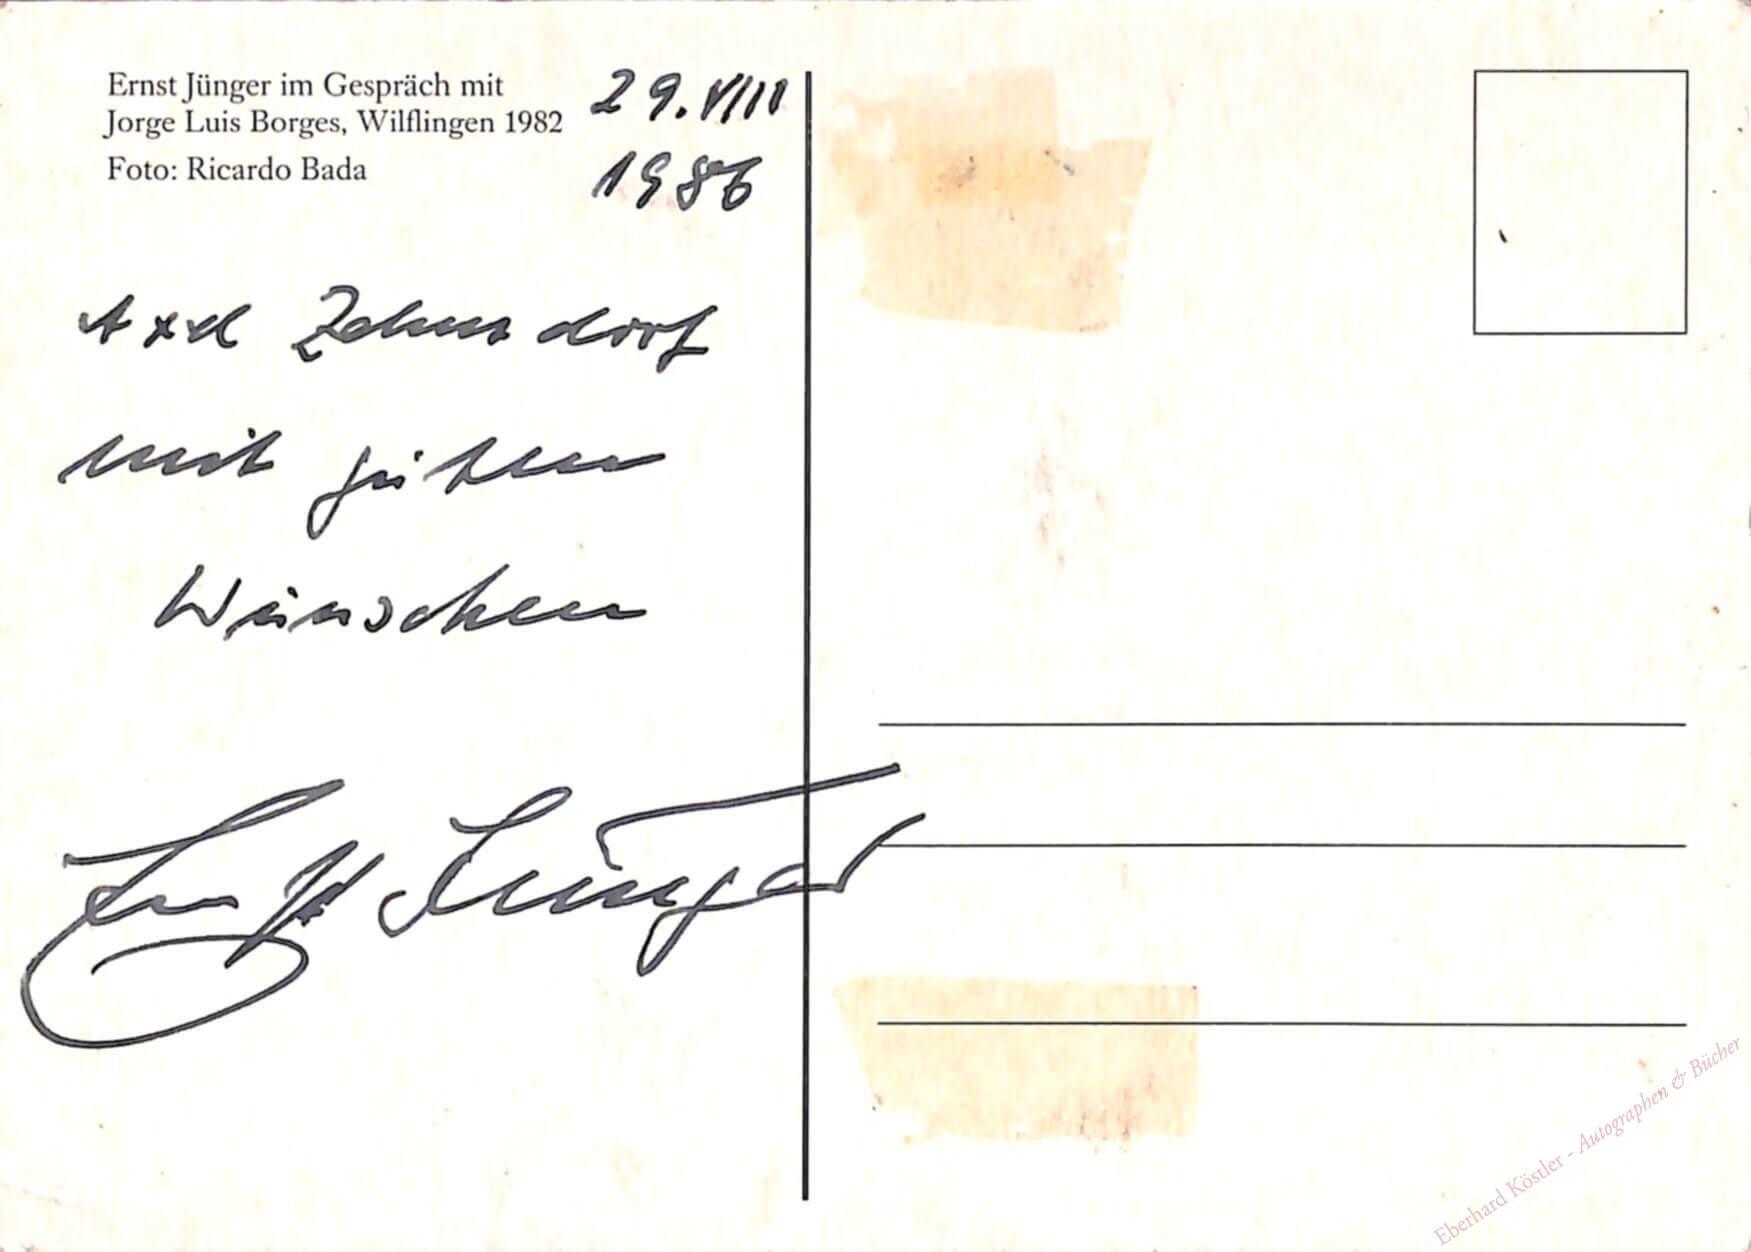 Ernst Jünger im Gespräch mit
Jorge Luis Borges, Wilflingen 1982
Foto: Ricardo Bada
29.VIII
1986
Axel Zehnsdorf
mit guten
Wünschen
Ernst Jünger
Eberhard Köstler - Autographen & Bücher